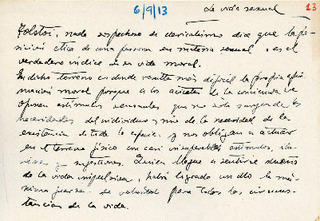 6/9/13
La vida sexual
13
Tolstoi, nada sospechoso de clericalismo dice que la po-
sición ética de una persona en materia sexual, es el
verdadero índice de su vida moral.
es donde resulta más difícil la propia
moral porque a los de la conciencia se
oponen estímulos sensuales que no solo surgen de las
necesidades del individuo y sino de la necesidad de la
existencia de toda la especie, y no obligan a actuar
en el terreno físico con casi insuperables estímulos,
y sugestiones. Quien llegue a sentirse dueño
de la vida habrá logrado con ello la
fuerza de voluntad para todas las circuns-
tancias de la vida.